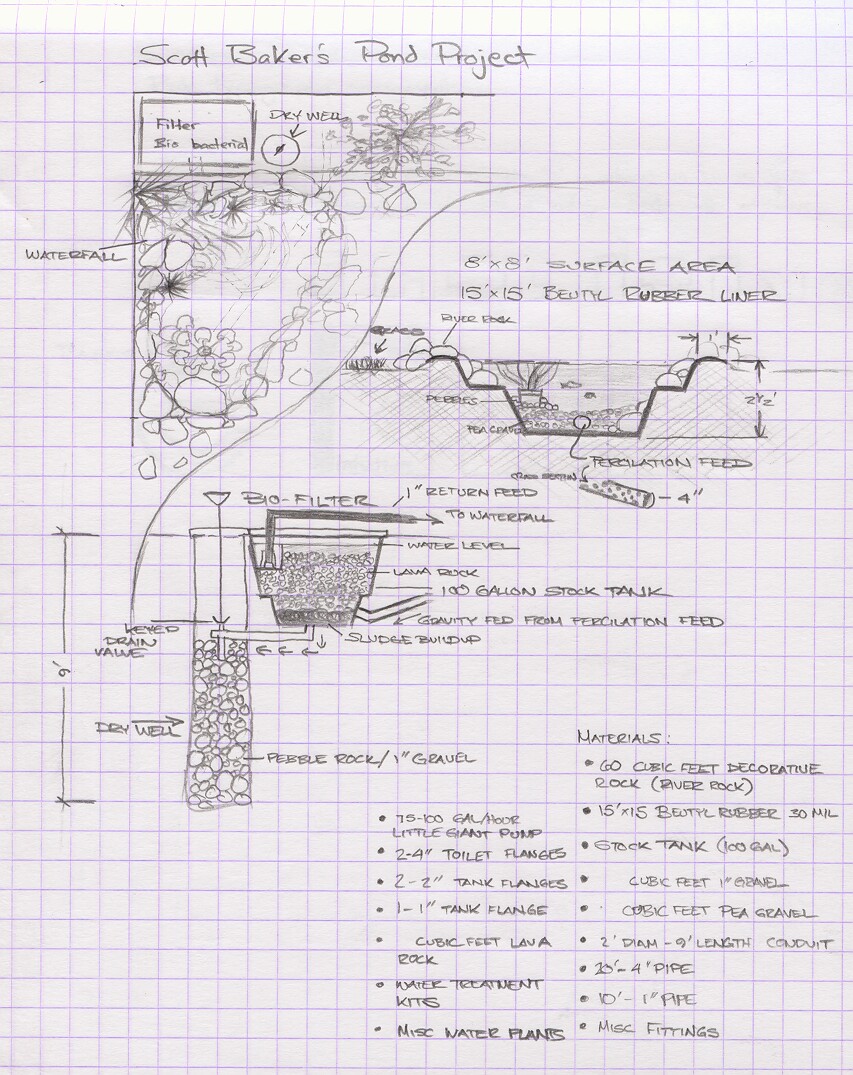 Scott Baker's Pond Project
Filter
Bio bacterial
DRY WELL
WATERFALL
8'x8' SURFACE AREA
15'x15' BEUTYL RUBBER LINER
RIVER ROCK
GRASS
1'
2½'
PEBBLES
PEA GRAVEL
PERCILATION FEED
4"
BIO-FILTER
1" RETURN FEED
TO WATERFALL
WATER LEVEL
LAVA ROCK
100 GALLON STOCK TANK
GRAVITY FED FROM PERCILATION FEED
SLUDGE BUILDUP
KEYED
DRAIN
VALVE
9'
DRY WELL
PEBBLE ROCK/1" GRAVEL
MATERIALS:
• 60 CUBIC FEET DECORATIVE
ROCK (RIVER ROCK)
• 15'x15 BEUTYL RUBBER 30 MIL
• STOCK TANK (100 GAL)
• CUBIC FEET 1" GRAVEL
• CUBIC FEET PEA GRAVEL
• 2' DIAM - 9' LENGTH CONDUIT
• 20'- 4" PIPE
• 10'- 1" PIPE
• MISC FITTINGS
• 75-100 GAL/HOUR
LITTLE GIANT PUMP
• 2-4" TOILET FLANGES
• 2-2" TANK FLANGES
• 1-1" TANK FLANGE
• CUBIC FEET LAVA
ROCK
• WATER TREATMENT
KITS
• MISC WATER PLANTS